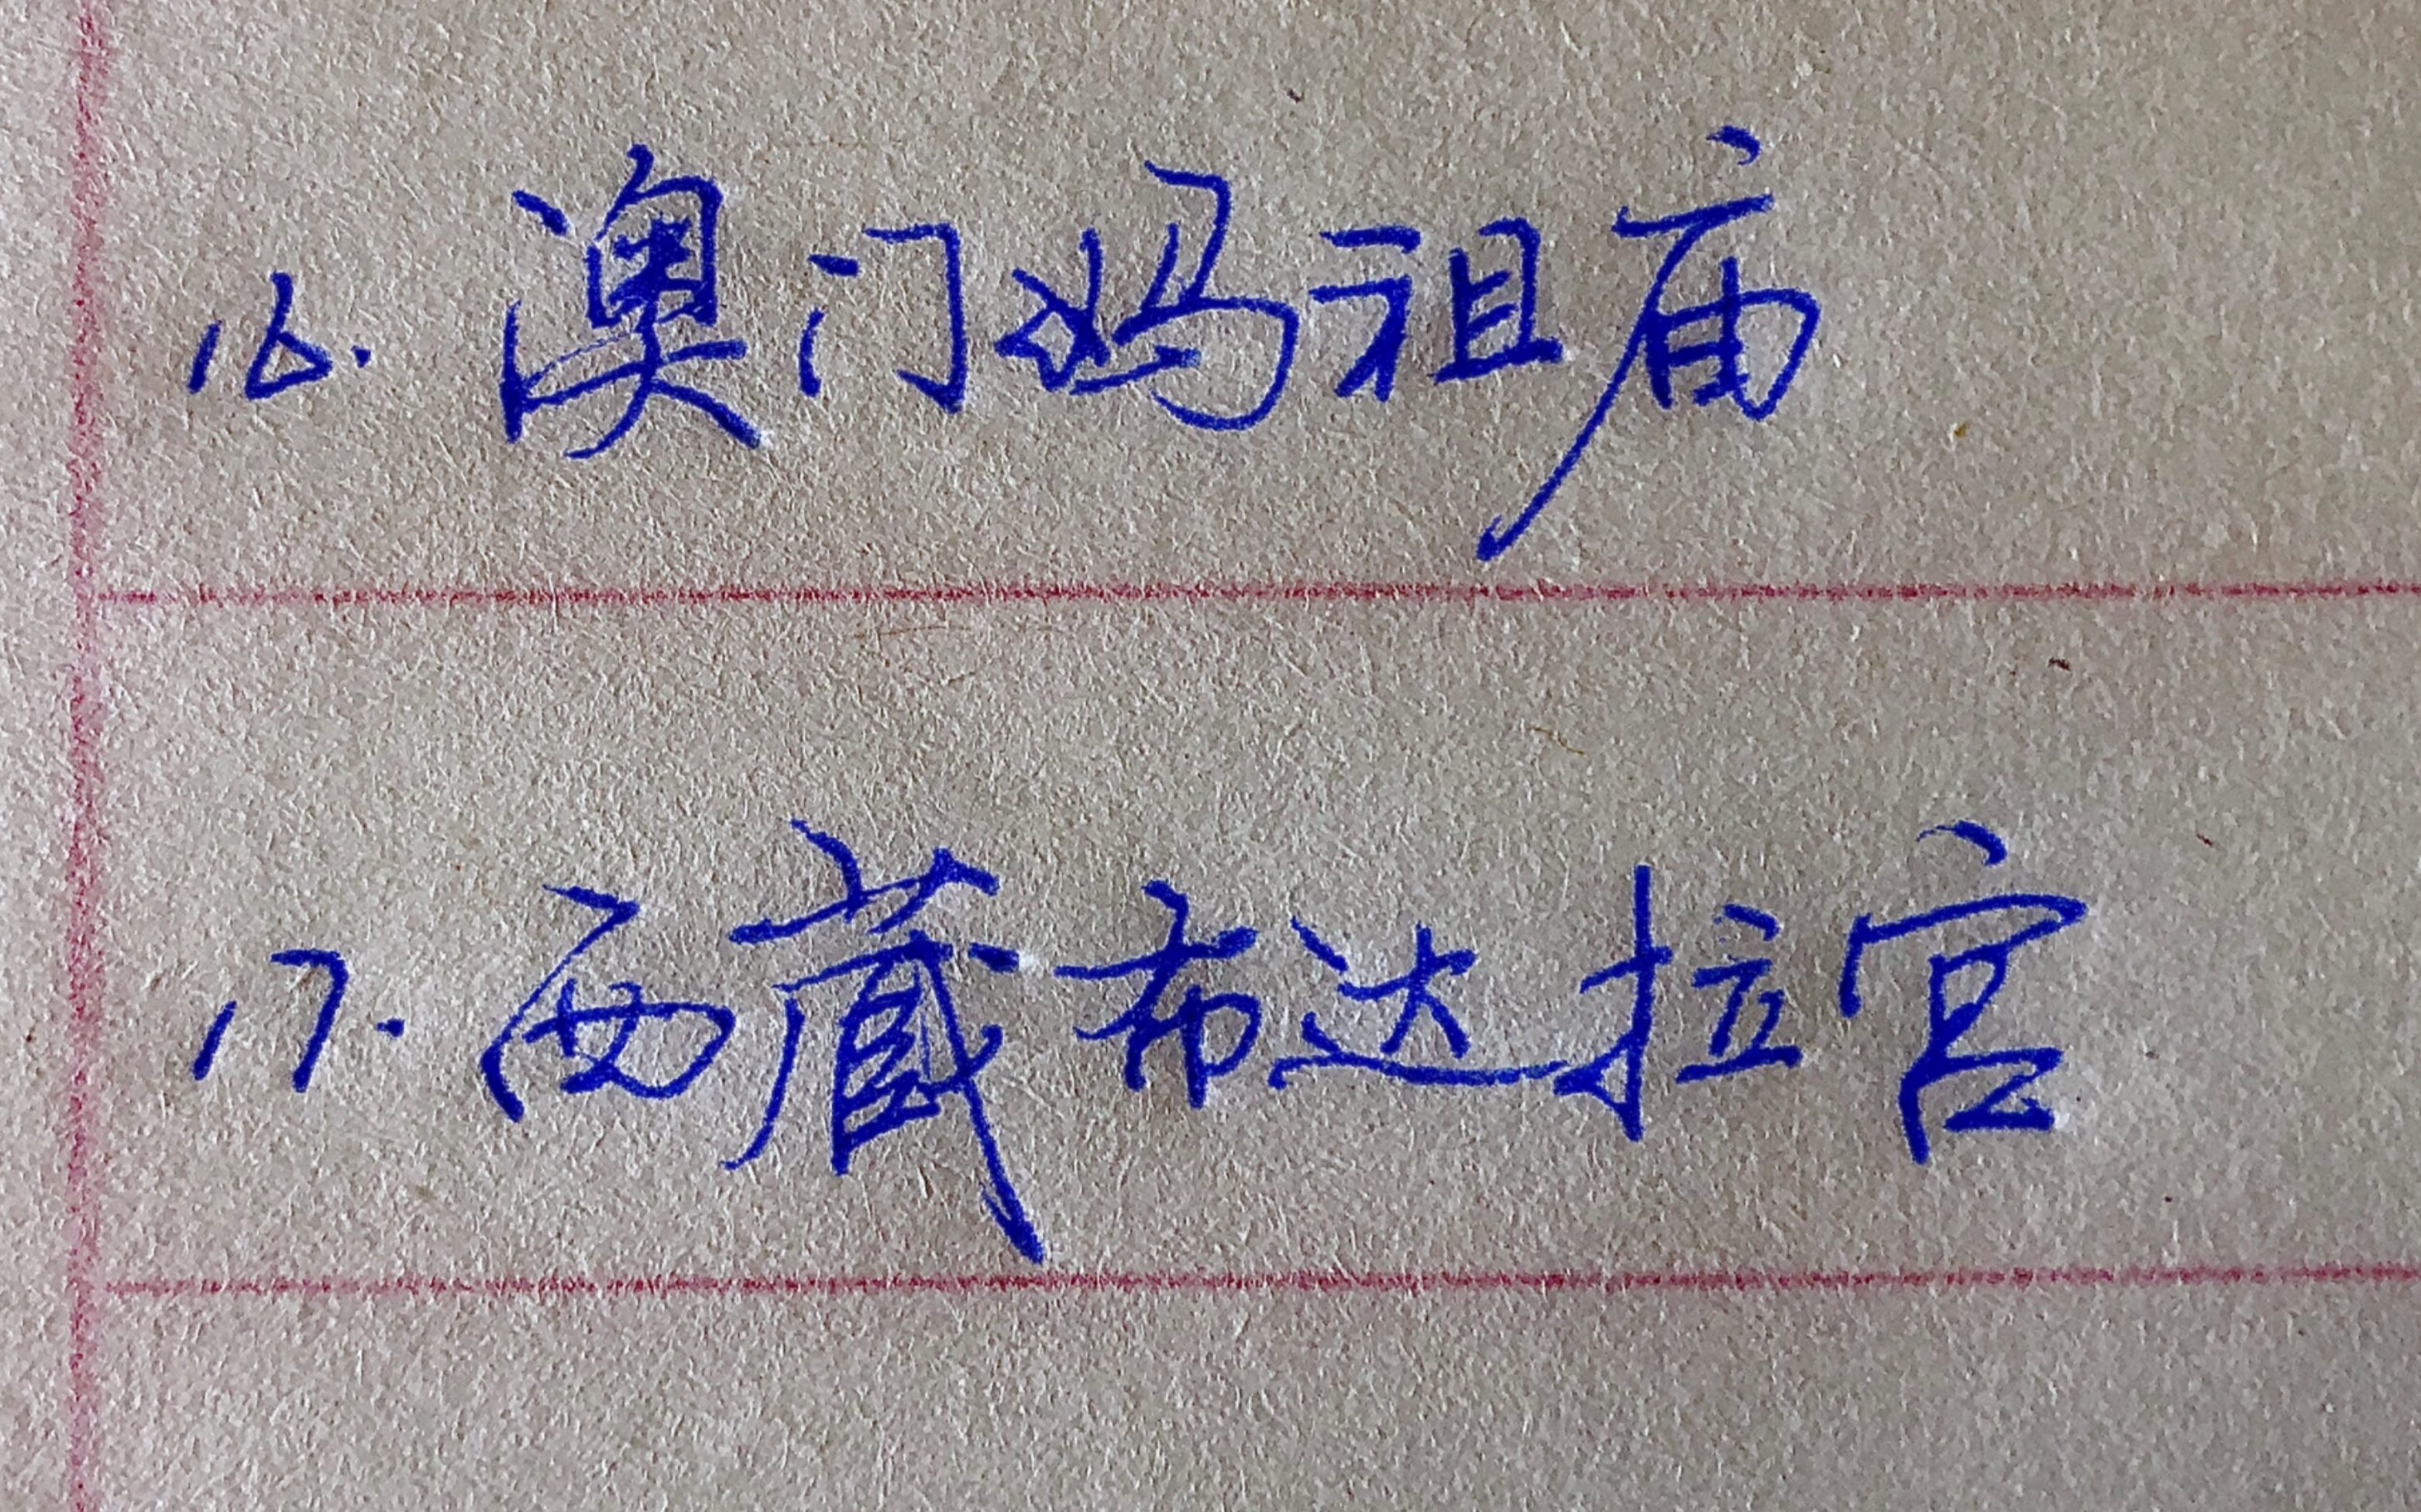 16. 澳门妈祖庙
17. 西藏布达拉宫